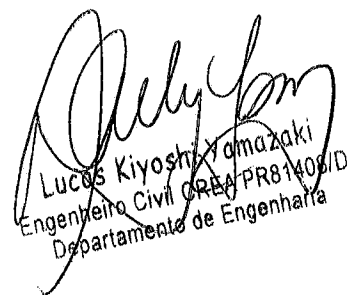 Lucas Kiyoshi Yamazaki
Engenheiro Civil CREA PR81408/D
Departamento de Engenharia